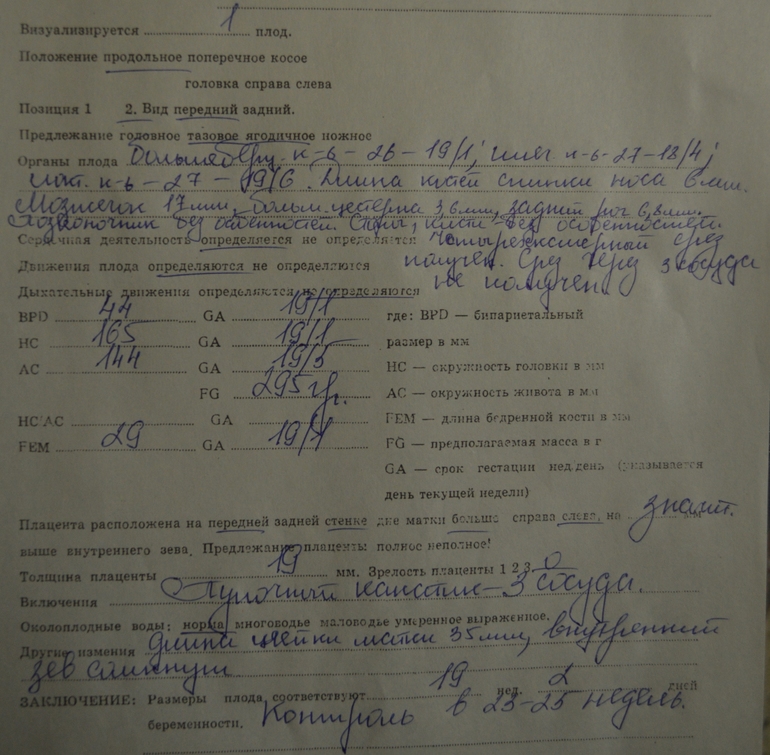 Визуализируется 1 плод.
Положение продольное поперечное косое
головка справа слева
Позиция 1 2. Вид передний задний.
Предлежание головное тазовое ягодичное ножное
Органы плода Большеберц. к-ь - 26 - 19/1; плеч. к-ь - 27 - 18/4;
лок. к-ь - 27 - 19/6. Длина костей спинки носа 6 мм.
Мозжечок 17 мм, больш. цестерна 3,6 мм, задний рог 6,8 мм.
Позвоночник без особенностей. Стопы, кисти - без особенностей.
Сердечная деятельность определяется не определяется Четырехкамерный срез
Движения плода определяются не определяются получен. Срез через 3 сосуда
Дыхательные движения определяются не определяются не получен.
BPD 44 GA 19/1 где: BPD — бипариетальный
HC 165 GA 19/1 размер в мм
AC 144 GA 19/5 HC — окружность головки в мм
FG 295 гр. AC — окружность живота в мм
HC/AC GA FEM — длина бедренной кости в мм
FEM 29 GA 19/1 FG — предполагаемая масса в г
GA — срок гестации нед.день (указывается
день текущей недели)
Плацента расположена на передней задней стенке дне матки больше справа слева, на значит. мм
выше внутреннего зева. Предлежание плаценты полное неполное!
Толщина плаценты 19 мм. Зрелость плаценты 1 2 3 0
Включения Пупочный канатик - 3 сосуда.
Околоплодные воды: норма многоводье маловодье умеренное выраженное.
Другие измения длина шейки матки 35 мм, внутренний
зев сомкнут
ЗАКЛЮЧЕНИЕ: Размеры плода соответствуют 19 нед. 2 дней
беременности. Контроль в 23-25 недель.